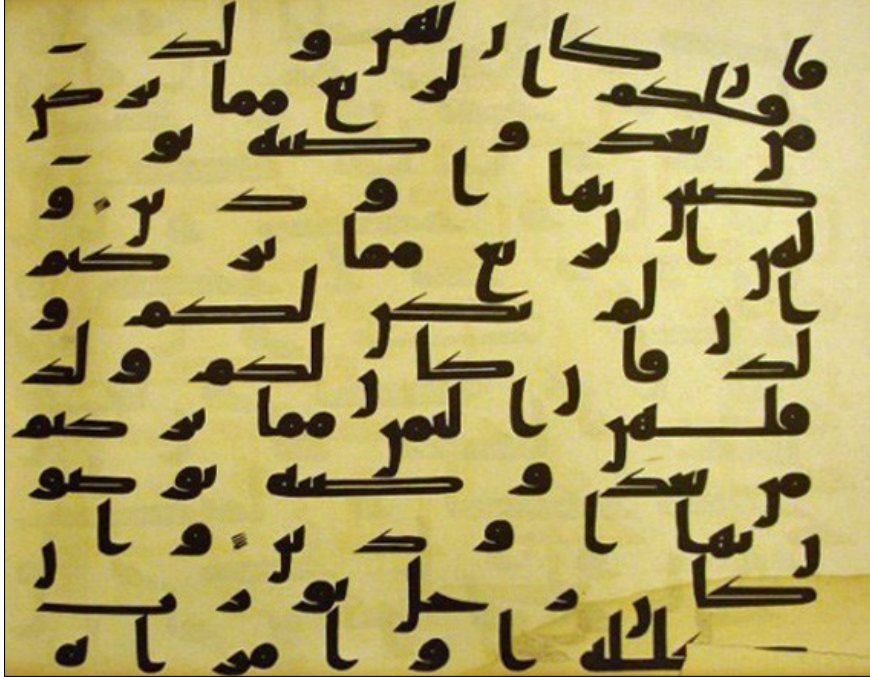 فان كان لهن ولد
فلكم الربع مما تركن
من بعد وصية يو
صين بها او دين و
لهن الربع مما تركتم
ان لم يكن لكم و
لد فان كان لكم ولد
فلهن الثمن مما تركتم
من بعد وصية توصو
ن بها او دين وان
كان رجل يورث
كللة او امراة